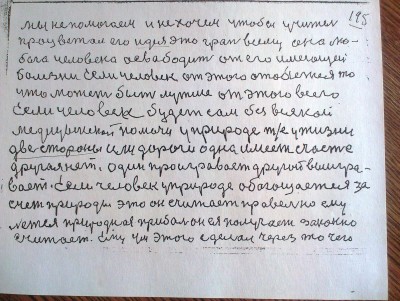 195
мы не помогаем и не хочем чтобы учител
процветал его идея это грат всему она лю-
бога человека освабодит от его имеющей
болезни если человек от этого отобьется то
что может быт лутше от этого всего
если человек будет сам без всякой
медицинской помочи у природе т/е у жизни
две стороны или дороги одна имеет счасте
другая нет. один проигравает другой выигра-
вает. если человек у природе обогощается за
счет природы это он считает правелно ему
льется природная прибал он ея получает законно
считает. Ему ум этого сделал через то чего